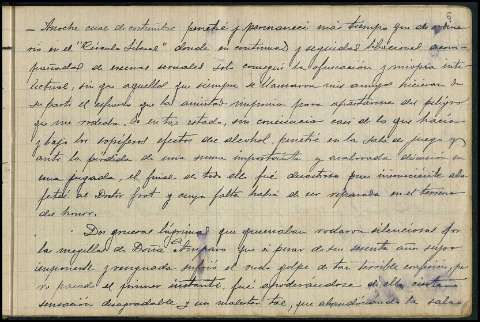 — Anoche cual de costumbre penetré y permanecí más tiempo que de ordina
rio en el "Círculo Liberal" donde en continuad y seguida libacional acom-
pañadas de escenas sexuales solo conseguí la ofuscación y miopía inte-
lectual, sin que aquellos que siempre se llamaron mis amigos hicieran de
su parte el esfuerzo que la amistad imponía para apartarme del peligro
que me rodeaba. En este estado, sin conciencia casi de lo que hacía
y bajo los soporíferos efectos del alcohol, penetré en la sala de juego y
ante la pérdida de una suma importante y acalorada discusión en
una jugada, el final de todo ello fué desastroso pues inconsciente abo-
feteé al Doctor Frost y cuya falta habrá de ser reparada en el terreno
del honor.
Dos gruesas lágrimas que quemaban rodaron silenciosas por
las megillas de Doña Amparo que á pesar de sus sesenta años supo
imponente y resignada sufrió el rudo golpe de tan terrible confesión, pe-
ro pasado el primer instante, fué apoderándose de ella cierta
sensación desagradable y un malestar tal, que abandonando la sala